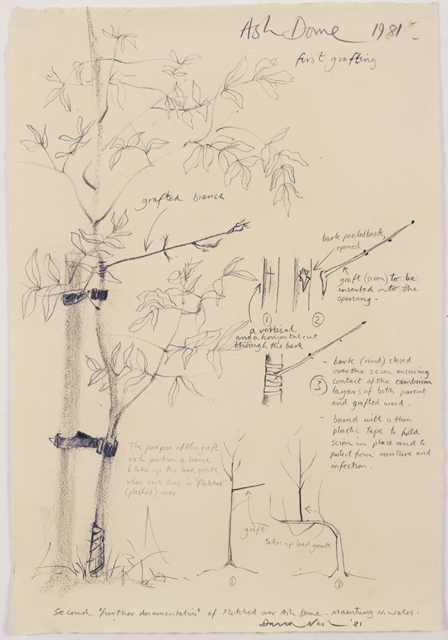 Ash Dome 1981
first grafting
grafted branch
bark peeled back,
opened
graft (scion) to be
inserted into the
opening.
1
2
a vertical
and a horizontal cut
through the bark
3
- bark (rind) closed
over the scion ensuring
contact of the cambium
layers of both parent
and grafted wood.
- bound with a thin
plastic tape to hold
scion in place and to
protect from moisture and
infection.
The purpose of the graft
is to position a branch
to take up the lead growth
when each tree is 'fletched'
(pleached) over
graft
takes up lead growth
1
2
Second 'further documentation' of Fletched over Ash Dome - Maentwrog N. Wales -
David Nash '81